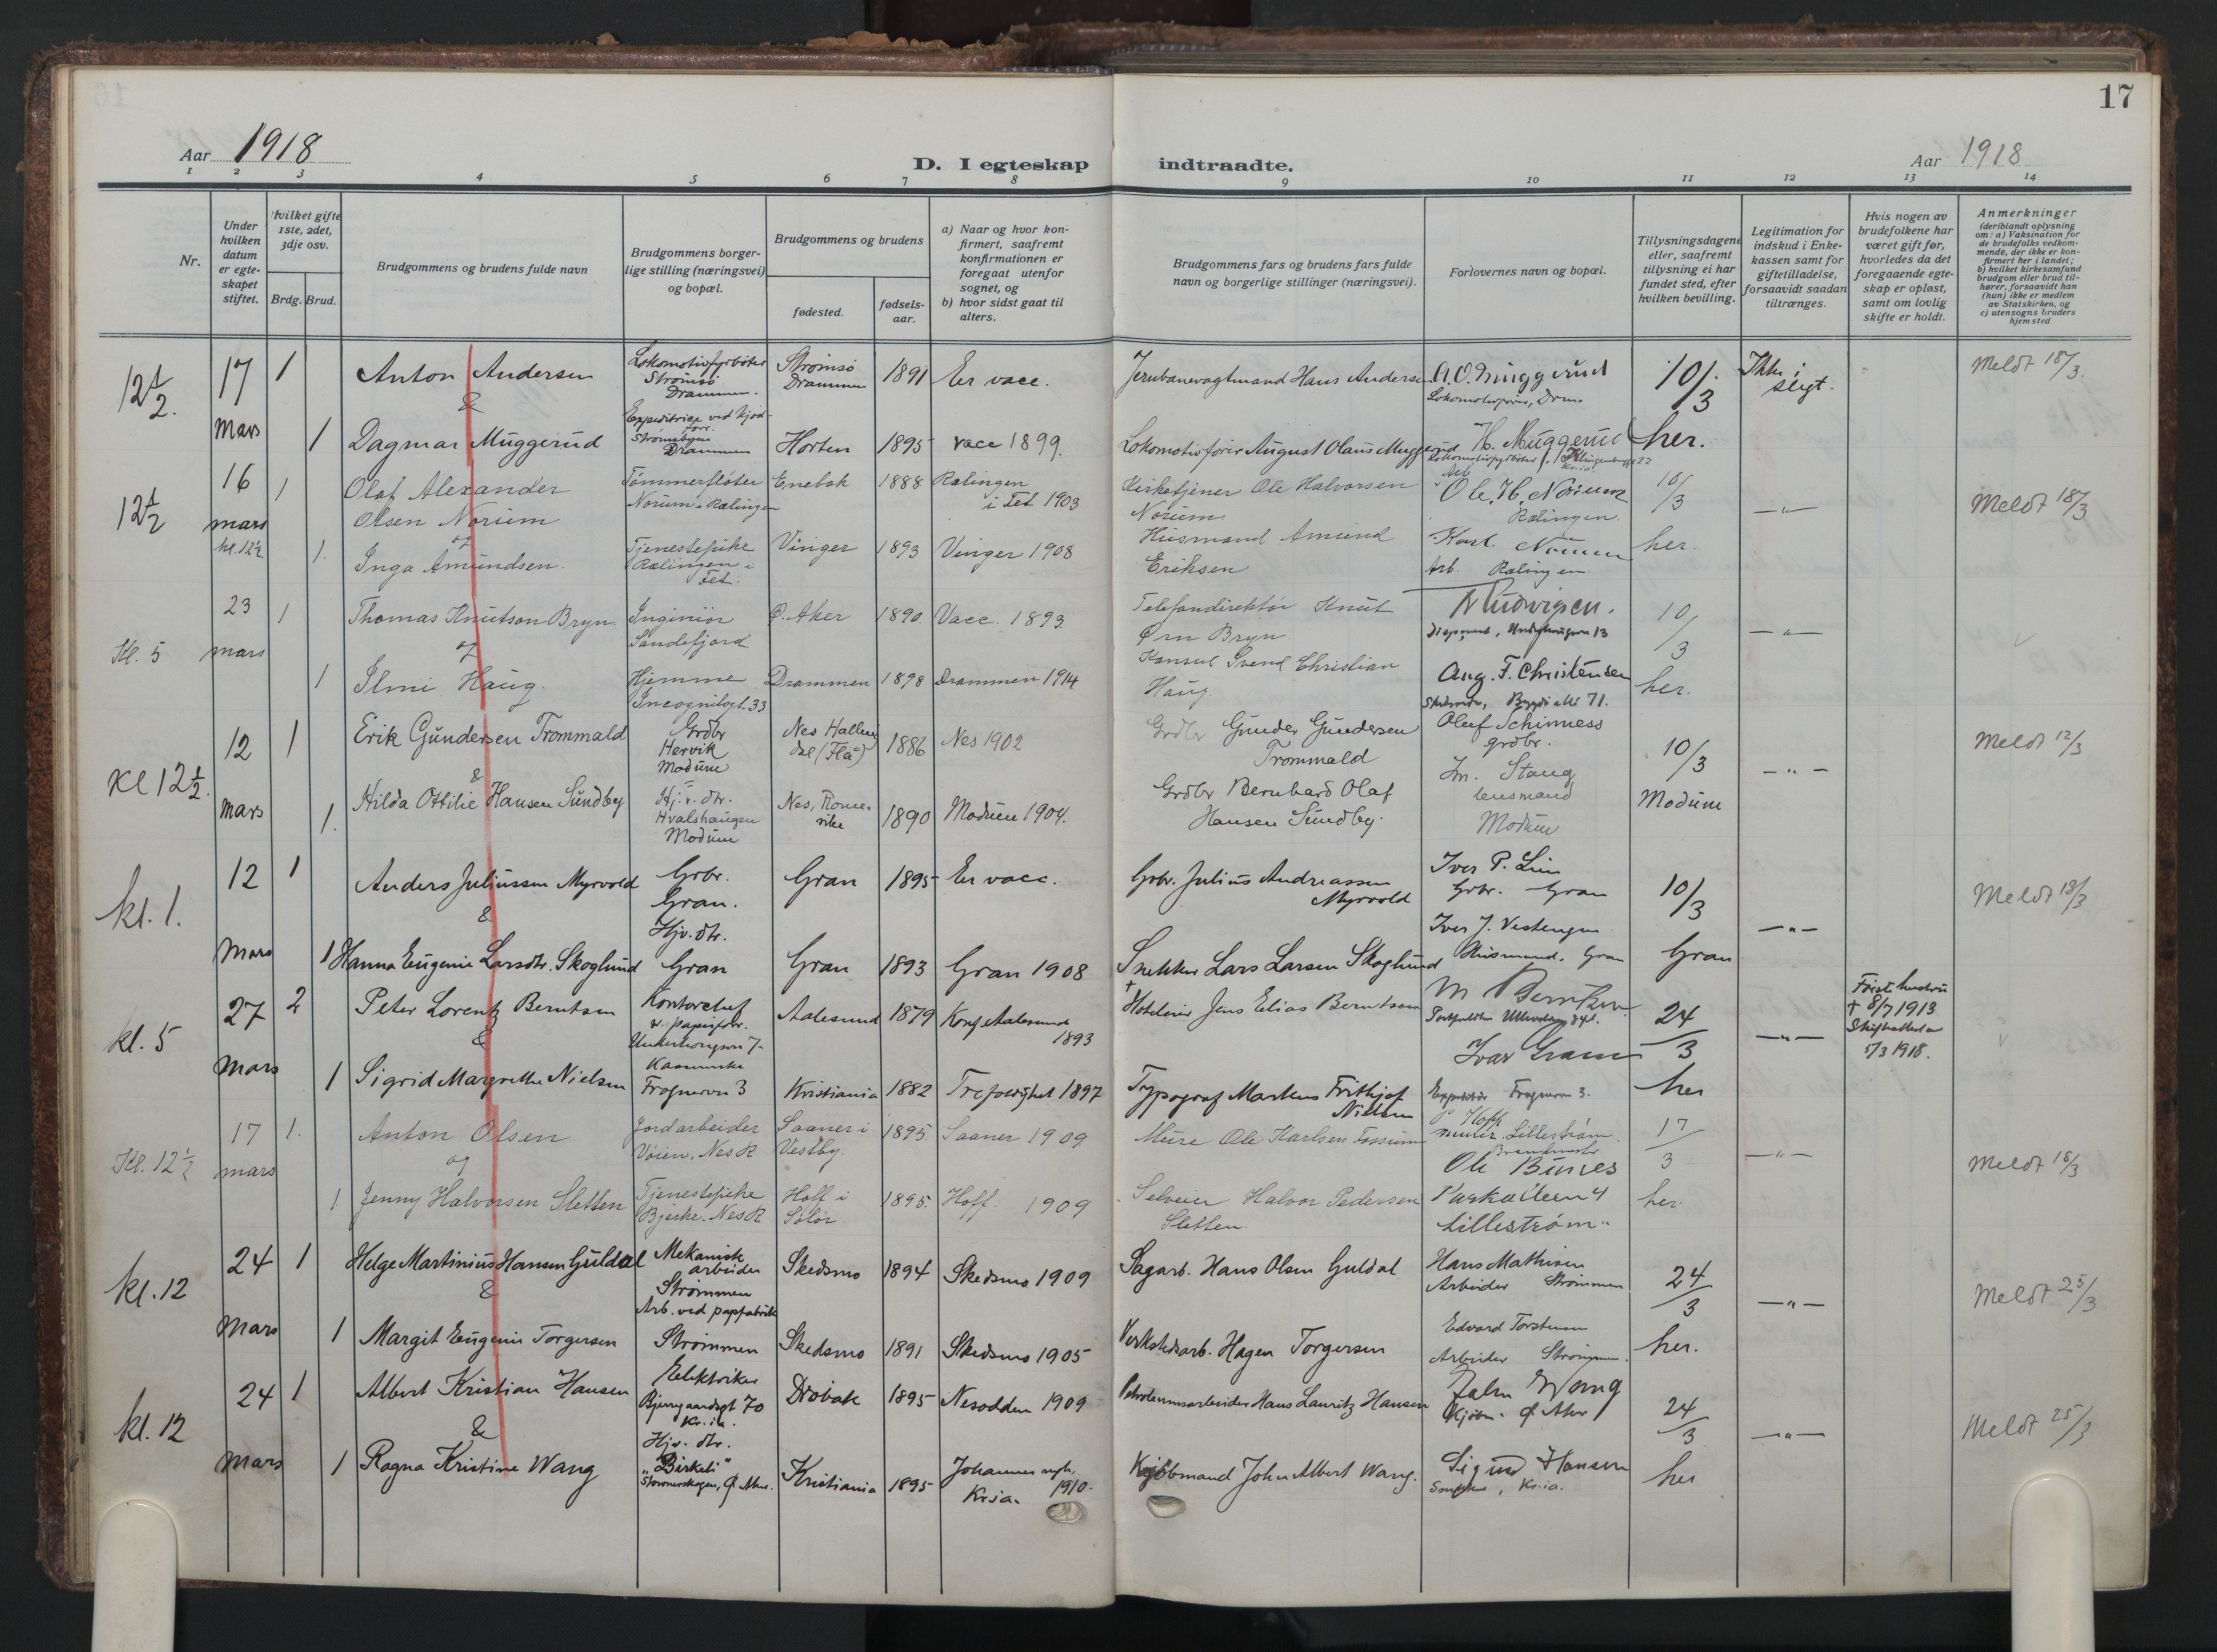 17
Aar 1918
D. I egteskap indtraadte.
Aar 1918
1 2 3 4 5 6 7 8 9 10 11 12 13 14
Nr.
Under hvilken datum er egteskapet stiftet.
Hvilket gifte 1ste, 2det, 3dje osv.
Brdg. Brud.
Brudgommens og brudens fulde navn
Brudgommens borgerlige stilling (næringsvei) og bopæl.
Brudgommens og brudens
fødested.
fødselsaar.
a) Naar og hvor konfirmert, saafremt konfirmationen er foregaat utenfor sognet, og
b) hvor sidst gaat til alters.
Brudgommens fars og brudens fars fulde navn og borgerlige stillinger (næringsvei).
Forlovernes navn og bopæl.
Tillysningsdagene eller, saafremt tillysning ei har fundet sted, efter hvilken bevilling.
Legitimation for indskud i Enkekassen samt for giftetilladelse, forsaavidt saadan tiltrænges.
Hvis nogen av brudefolkene har været gift før, hvorledes da det foregaaende egteskap er opløst, samt om lovlig skifte er holdt.
Anmerkninger (deriblandt oplysning om: a) Vaksination for de brudefolks vedkommende, der ikke er konfirmert her i landet; b) hvilket kirkesamfund brudgom eller brud tilhører, forsaavidt han (hun) ikke er medlem av Statskirken, og c) utensogns bruders hjemsted
12 1/2. 17 1 Anton Andersen Lokomotivfyrbøter Strømsø Drammen. Strømsø Drammen 1891 Er vacc. Jernbanevagtmand Hans Andersen A. O. Muggerud 10/3 Ikke i slegt. Meldt 18/3.
&
Mars 1 Dagmar Muggerud Expeditrice ved Strømsbyen Drammen Horten 1895 vacc 1899. Lokomotivfører August Olaus Muggerud H. Muggerud her.
12 1/2 16 1 Olaf Alexander Olsen Norum Tømmerfløter Norum i Rælingen Enebak 1888 Rælingen i Fet 1903 Kirketjener Ole Halvorsen Norum Arb. Ole H. Norum Rælingen. 10/3 — " — Meldt 18/3
mars kl. 12 1/2 og
1. Inga Amundsen. Tjenestepike Rælingen i Fet. Vinger 1893 Vinger 1908 Husmand Amund Eriksen Karl Norum Arb. Rælingen her.
Kl. 5 23 mars 1 Thomas Knutson Bryn Ingeniør Sandefjord Ø. Aker 1890. Vacc. 1893. Telefondirektør Knut Ørn Bryn 10/3 — " —
og
1 Ilmi Haug. Hjemme Incognitogt. 33 Drammen 1898 Drammen 1914 Konsul Svend Christian Haug. Aug. F. Christensen her.
Kl 12 1/2. 12 1 Erik Gundersen Trommald Grdbr Hervik Modum Nes Hallingdal (Flå) 1886 Nes 1902 Grdbr Gunder Gundersen Trommald Oluf Schinness grdbr. 10/3 — " — Meldt 12/3
&
Mars 1. Hilda Ottilie Hansen Sundby Hj.v. dtr. Hvalshaugen Modum Nes, Romerike 1890 Modum 1904. Grdbr Bernhard Olaf Hansen Sundby. Stang lensmand Modum Modum
kl. 1. 12 1 Anders Juliussen Myrvold Grbr. Gran. Gran 1895 Er vacc. Grbr. Julius Andreassen Myrvold Iver P. Lim Grbr. Gran 10/3 — " — Meldt 18/3
&
Mars 1 Hanna Eugenie Larsdtr. Skoglund Hjv. dtr. Gran Gran 1893 Gran 1908 Snekker Lars Larsen Skoglund Iver J. Vestengen Husmand, Gran Gran
kl. 5 27 2 Peter Lorentz Berntsen Kontorchef v. papirforr. Underhaugsvn 7 Aalesund 1879 Konf. Aalesund 1893 † Hoteleier Jens Elias Berntsen M Berntsen 24/3 — " — Første hustru † 8/7 1913 Skifteattest av 5/3 1918.
&
Mars 1 Sigrid Margrethe Nielsen Frognervn 3 Kristiania 1882 Trefoldighet 1897 Typograf Martens Frithjof Nielsen Ivar Gram Frognervn 3. her
Kl. 12 1/2 17 mars 1. Anton Olsen Jordarbeider Voien, Nes R Saaner i Vestby. 1895 Saaner 1909 Murer Ole Karlsen Fossum Hoff murer. Lillestrøm. 17/3 — " — Meldt 18/3
og
1 Jenny Halvorsen Sletten Tjenestepike Bjerke. Nes R. Hoff i Solør. 1895. Hoff. 1909 Selveier Halvor Pedersen Sletten. Ole Lillestrøm. her.
kl. 12 24 1 Helge Martinius Hansen Guldal Mekanisk arbeider Strømmen Skedsmo 1894 Skedsmo 1909 Sagarb. Hans Olsen Guldal Hans Mathisen Arbeider Strømmen 24/3 — " — Meldt 25/3
&
Mars 1 Margit Eugenie Torgersen Arb. ved papfabrik Strømmen Skedsmo 1891 Skedsmo 1905 Verkstedsarb. Hagen Torgersen Edvard Torstensen Arbeider Strømmen. her.
kl. 12 24 1 Albert Kristian Hansen Elektriker Bjerregaardsgt 70 Kr.ia. Drøbak 1895 Nesodden 1909 Petroleumsarbeider Hans Lauritz Hansen John Wang Kjøbm. Ø. Aker 24/3 — " — Meldt 25/3
&
Mars 1 Ragna Kristine Wang Hjv. dtr. "Birkeli" Ø. Aker. Kristiania 1895 Johannes Kr.ia. 1910. Kjøbmand John Albert Wang. Sigurd Hansen Kr.ia. her